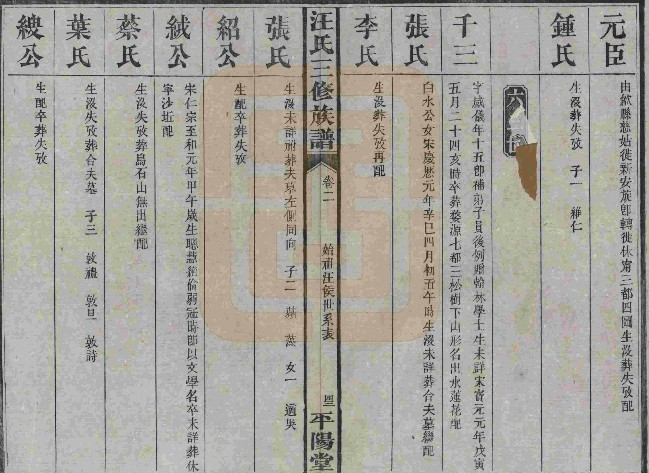 元臣
由歙縣慈姑徙新安旌卽轉徙休甯三都四圖生沒葬失攷配
鍾氏
生沒葬失攷 子一 雜仁
千三
字威儀年十五卽補弟子員後例贈翰林學士生未詳宋寶元元年戊寅
五月二十四亥時卒葬婺源七都三松樹下山形名出水蓮花配
張氏
白水公女宋慶歷元年辛巳四月初五午時生沒未詳葬合夫墓繼配
李氏
生沒葬失攷再配
汪氏三修族譜
卷二
始祖汪侯世系表
平陽堂
張氏
生沒未詳附葬夫墓左側同向 子二 女一 適吳
紹公
生配卒葬失攷
絨公
宋仁宗至和元年甲午歲生聰慧絕倫弱冠時卽以文學名卒未詳葬休
寧沙近配
蔡氏
生沒失攷葬烏石山無出繼配
葉氏
生沒失攷葬合夫墓 子三 敦禮 敦旦 敦詩
綬公
生配卒葬失攷